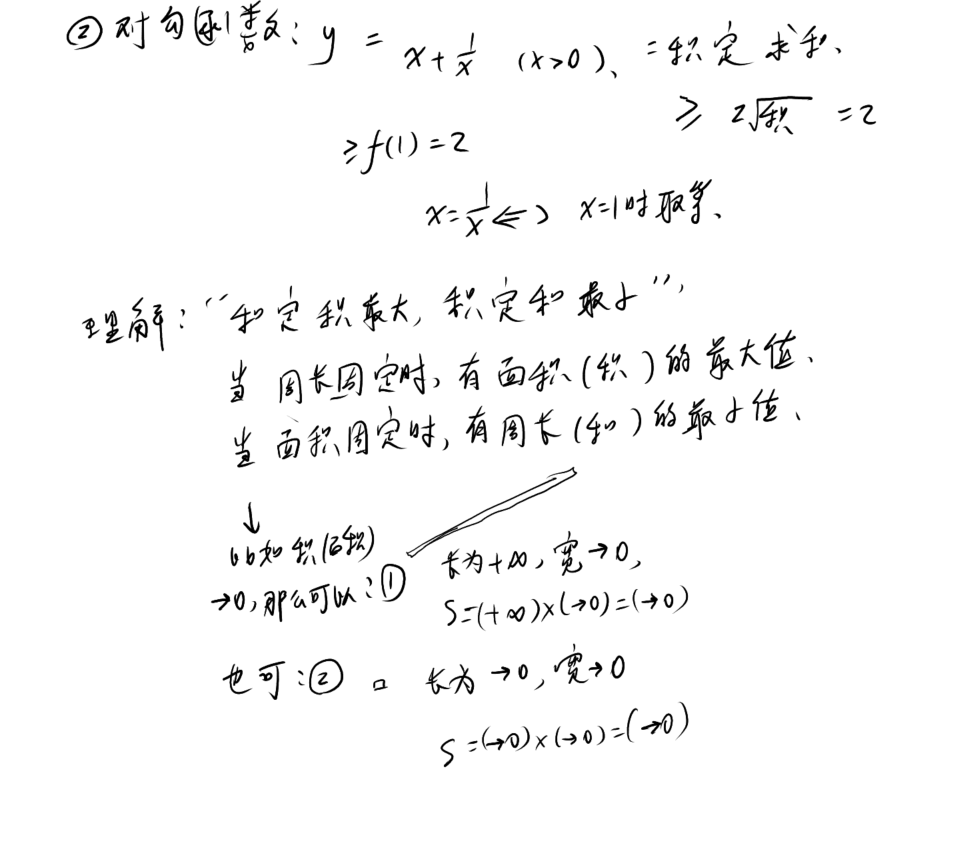 ②对勾函数: y = x+1/x (x>0)、=积定求和、
≥f(1)=2 ≥ 2√积 =2
x=1/x⇔ x=1时取等、
理解:“和定积最大, 积定和最小”,
当 周长固定时, 有面积(积)的最大值、
当 面积固定时, 有周长(和)的最小值、
↓
比如积(面积)
→0, 那么可以:① 长为+∞, 宽→0,
S=(+∞)×(→0)=(→0)
也可:② □ 长为→0, 宽→0
S=(→0)×(→0)=(→0)